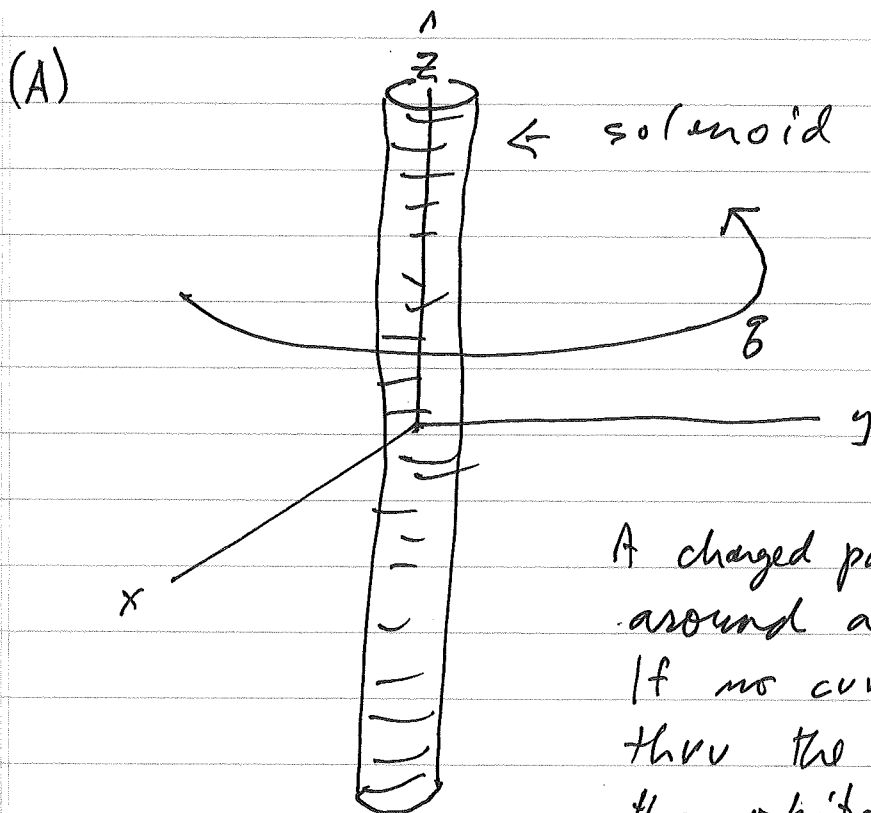 (A)
^
z
← solenoid
q
y
x
A charged
around a
If no
thru the